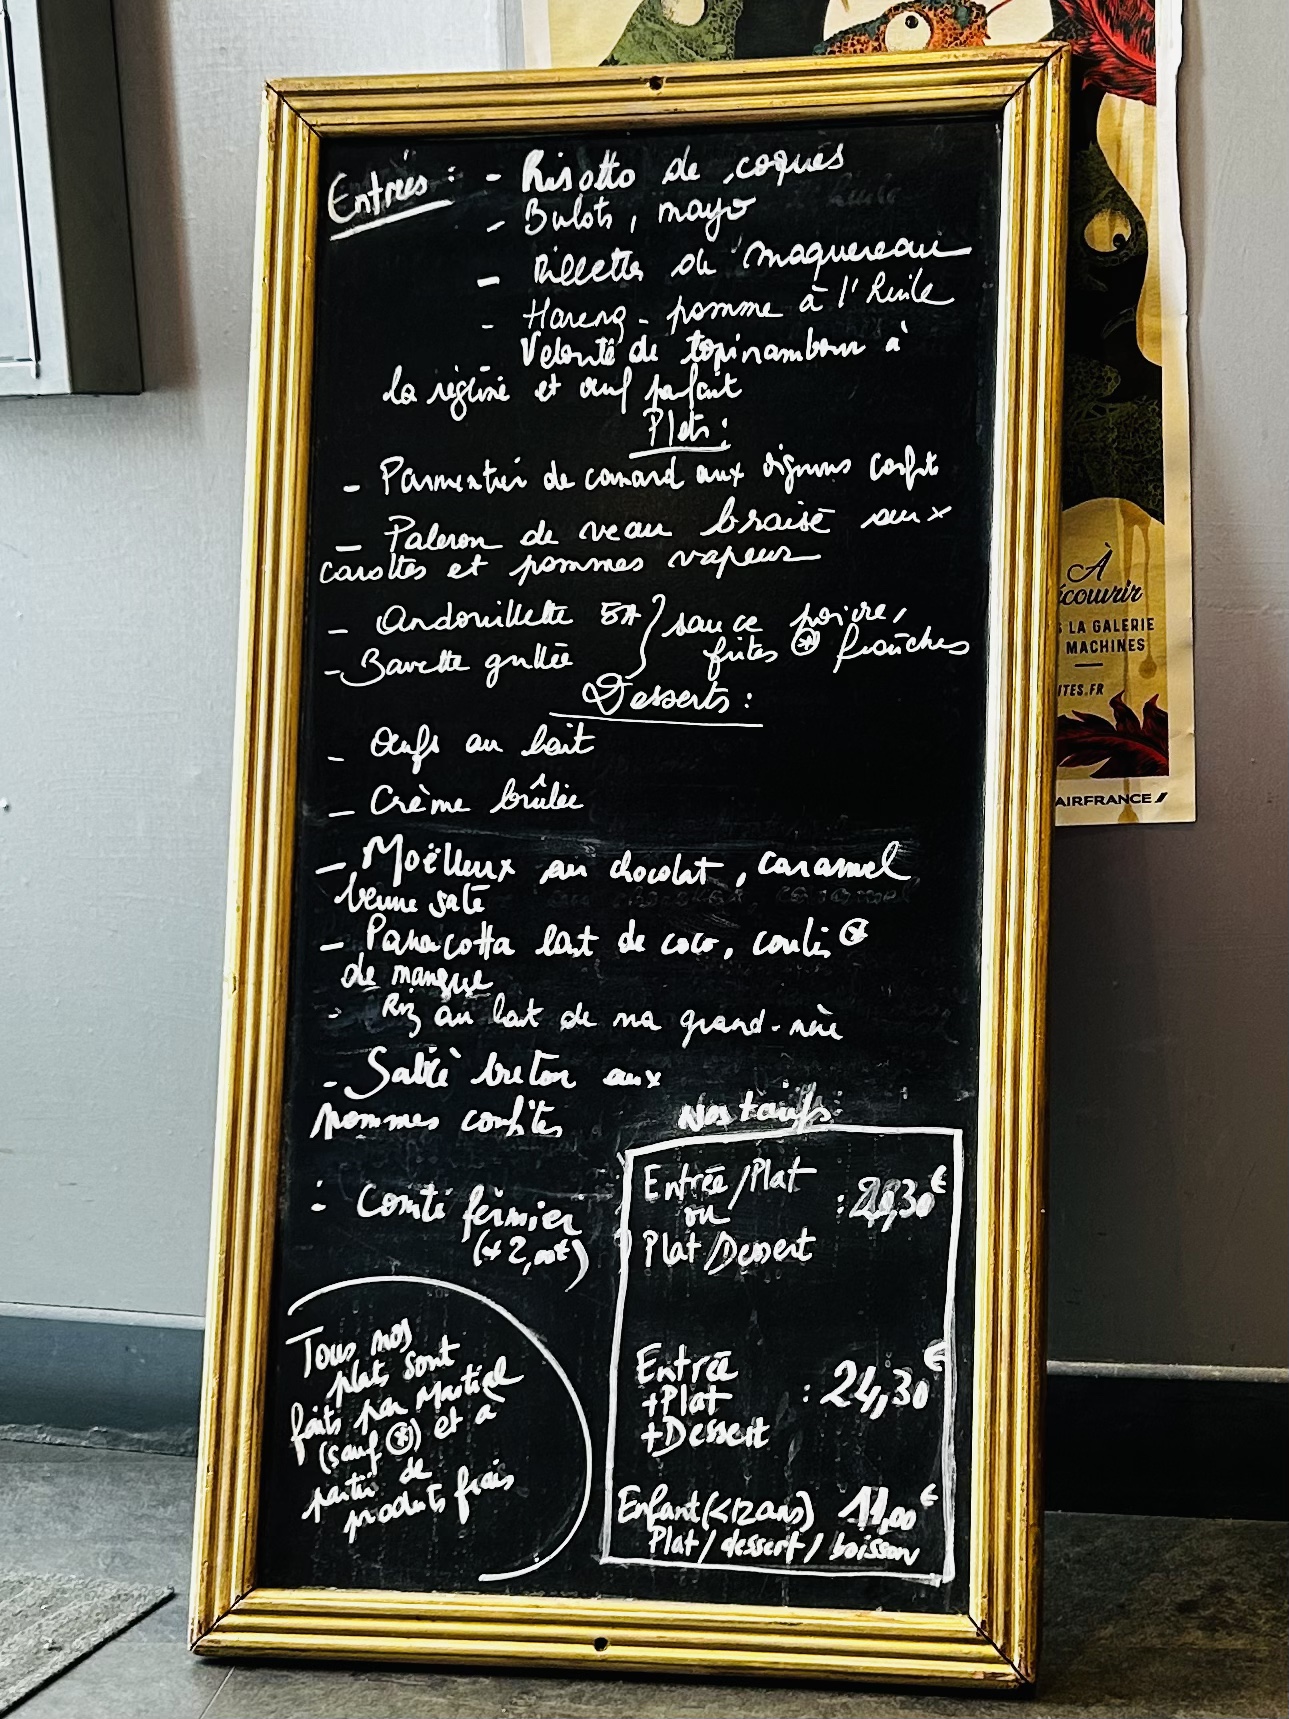 Entrées : - Risotto de coques
- Bulots, mayo
- Rillettes de maquereau
- Hareng - pomme à l'huile
Velouté de topinambour à
la réglisse et œuf parfait
Plats :
- Parmentier de canard aux oignons confits
- Paleron de veau braisé aux
carottes et pommes vapeur
- Andouillette 5A } sauce poivre,
- Bavette grillée } frites * fraîches
Desserts :
- Œufs au lait
- Crème brûlée
- Moëlleux au chocolat, caramel
beurre salé
- Panacotta lait de coco, coulis *
de mangue
- Riz au lait de ma grand-mère
- Sablé breton aux
pommes confites
- Comté fermier
(+ 2,00€)
Tous nos
plats sont
faits par Martial
(sauf *) et à
partir de
produits frais
Nos tarifs :
Entrée/Plat
ou : ,30€
Plat/Dessert
Entrée
+Plat : 24,30€
+Dessert
Enfant (<12ans) 11,00€
Plat/dessert/boisson
À
écouvrir
LA GALERIE
MACHINES
ITES.FR
AIRFRANCE